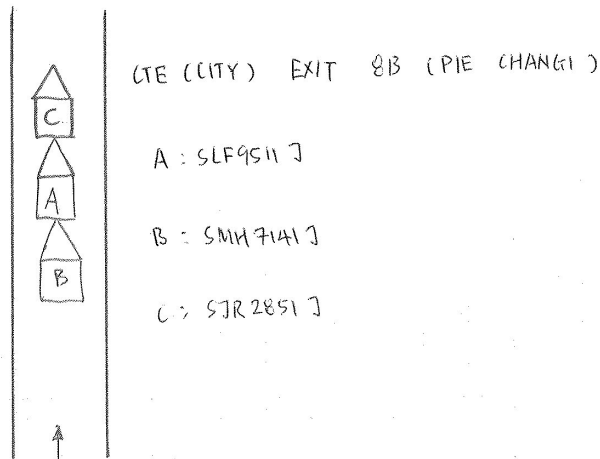 CTE (CITY) EXIT 8B (PIE CHANGI)
C
A
B
A : SLF9511J
B : SMH7141J
C : SJR2851J